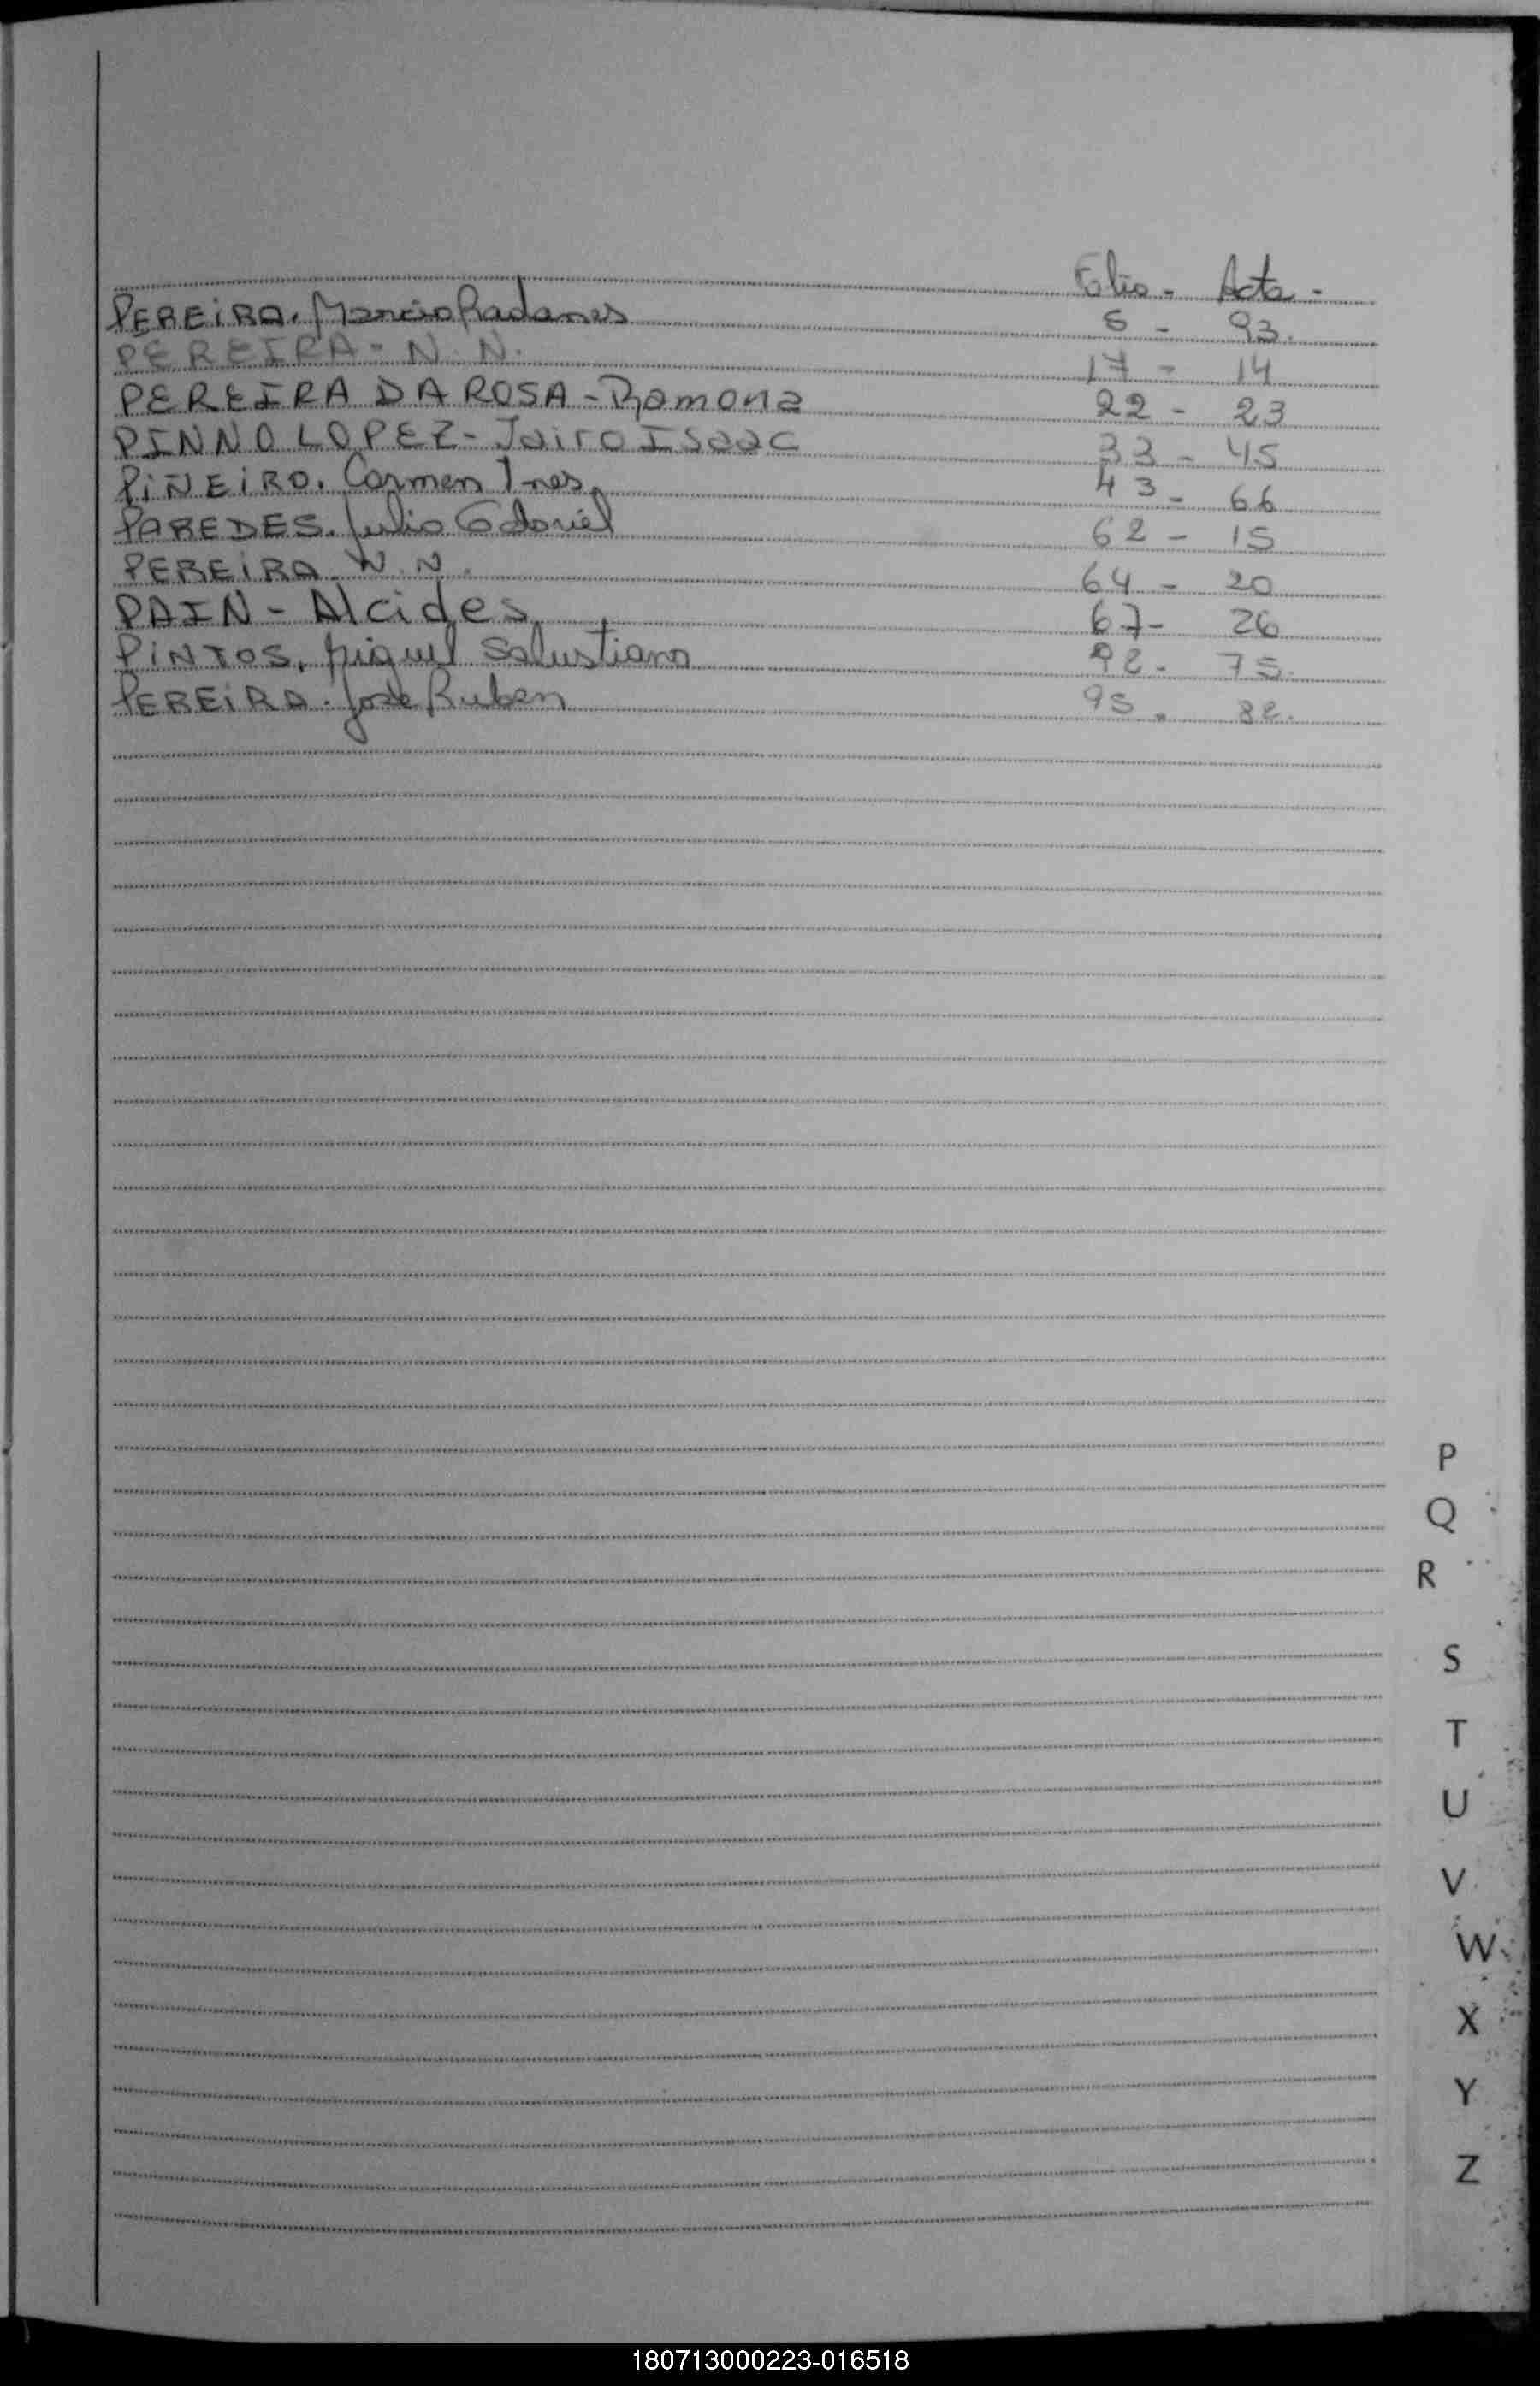 Folio - Acta -
PEREIRA. Marcio Radames 6 - 93.
PEREIRA - N. N. 17 - 14
PEREIRA DA ROSA - Ramona 22 - 23
PINNO LOPEZ - Jairo Isaac 33 - 45
PIÑEIRO. Carmen Ines 43 - 66
PAREDES. Julio Gabriel 62 - 15
PEREIRA. N. N. 64 - 20
PAIN - Alcides 67 - 26
PINTOS. Miguel Salustiano 92 - 75.
PEREIRA. José Ruben 95 - 82.
P
Q
R
S
T
U
V
W
X
Y
Z
180713000223-016518